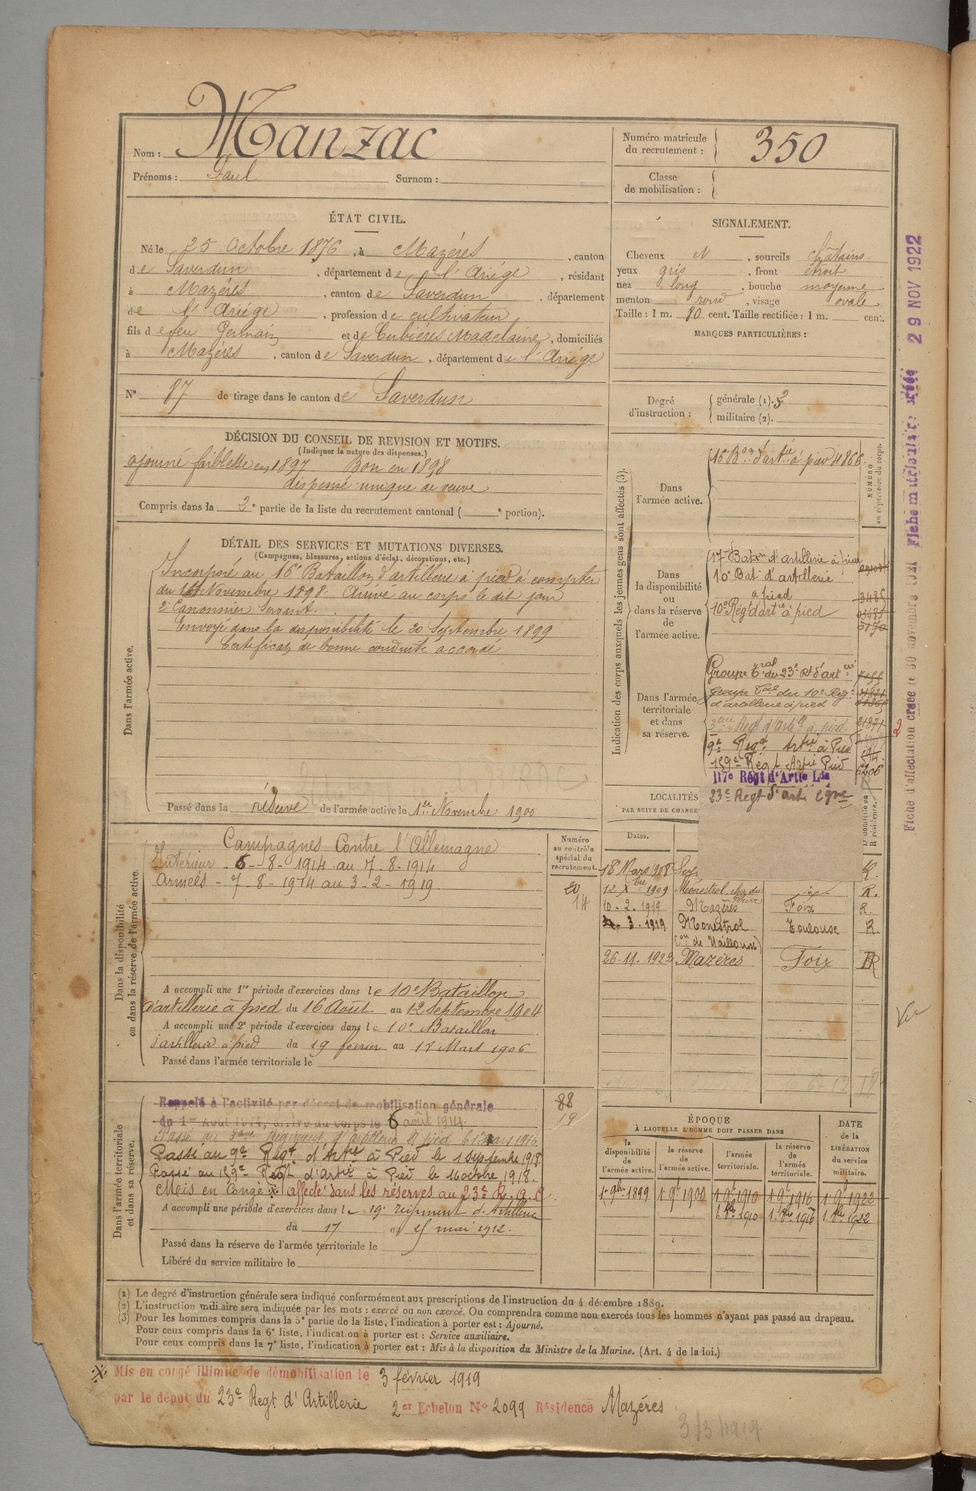 Nom : Manzac
Prénoms : Paul Surnom :
Numéro matricule du recrutement : 350
Classe de mobilisation :
ÉTAT CIVIL.
Né le 25 Octobre 1876, à Mazères, canton
de Saverdun, département de l'Ariège, résidant
à Mazères, canton de Saverdun, département
de l'Ariège, profession de cultivateur
fils de feu Germain et de Cubières Madelaine, domiciliés
à Mazères, canton de Saverdun, département de l'Ariège
N° 87 de tirage dans le canton de Saverdun
SIGNALEMENT.
Cheveux N, sourcils châtains
yeux gris, front étroit
nez long, bouche moyenne
menton rond, visage ovale
Taille : 1 m. 80 cent. Taille rectifiée : 1 m. cent.
MARQUES PARTICULIÈRES :
Degré d'instruction : générale (1). 3
militaire (2).
DÉCISION DU CONSEIL DE REVISION ET MOTIFS.
(Indiquer la nature des dispenses.)
ajourné faiblesse en 1897 Bon en 1898
dispensé unique de veuve
Compris dans la 3e partie de la liste du recrutement cantonal ( e portion).
DÉTAIL DES SERVICES ET MUTATIONS DIVERSES.
(Campagnes, blessures, actions d'éclat, décorations, etc.)
Dans l'armée active.
Incorporé au 16e Bataillon d'artillerie à pied à compter
du Novembre 1898. Arrivé au corps le dit jour
2e Canonnier Servant.
Envoyé dans la disponibilité le 20 Septembre 1899
Certificat de bonne conduite accordé
Passé dans la réserve de l'armée active le 1er Novembre 1900
Indication des corps auxquels les jeunes gens sont affectés (3).
NUMÉRO au répertoire du corps.
Dans l'armée active.
16 Bon d'artie à pied 1866
Dans la disponibilité ou dans la réserve de l'armée active.
17e Baton d'artillerie à pied
10e Bat. d'artillerie
à pied
10e Régt d'artie à pied
Dans l'armée territoriale et dans sa réserve.
Groupe tral du 23e Rt d'artie
Groupe Tal du 10e Rég.
d'artillerie à pied
Régt d'artie à pied
9e Régt Artie à Pied
159e Régt Artie Pied
117e Régt d'Artie Lde
23e Regt d'art. Cgne
LOCALITÉS
PAR SUITE DE CHANGE
Dates.
D domicile ou R résidence.
18 Mars 1908 R.
12 Xbre 1909 R.
10 - 2. 1919 Mazères Foix R.
3. 1919 Monestrol Toulouse R.
26-11-1922 Mazères Foix R
Fiche d'affectation créée le 30 novembre
Fiche matriculaire créée 29 NOV 1922
Dans la disponibilité ou dans la réserve de l'armée active.
Numéro au contrôle spécial du recrutement.
20
14
Campagnes Contre l'Allemagne
Intérieur - 6 - 8 - 1914 au 7 - 8 - 1914
Armées - 7 - 8 - 1914 au 3 - 2 - 1919.
A accompli une 1re période d'exercices dans le 10e Bataillon
d'artillerie à pied du 16 Août au 12 Septembre 1904
A accompli une 2e période d'exercices dans le 10e Bataillon
d'artillerie à pied du 19 février au 17 Mars 1906
Passé dans l'armée territoriale le
Dans l'armée territoriale et dans sa réserve.
88
19
Rappelé à l'activité par décret de mobilisation générale
du 1er Août 1914, arrivé au corps le 6 août 1914.
Passé au Régiment d'artillerie à pied
Passé au 9e Régt d'Artie à Pied le 1 Septembre 1918
Passé au 159e Régt d'Artie à Pied le 16 octobre 1918.
Mis en Congé ※ affecté dans les réserves au 23e R.A.C
A accompli une période d'exercices dans le 19e régiment d'Artillerie
du 17 au mai 1912.
Passé dans la réserve de l'armée territoriale le
Libéré du service militaire le
ÉPOQUE
À LAQUELLE L'HOMME DOIT PASSER DANS
DATE de la LIBÉRATION du service militaire.
la disponibilité de l'armée active.
la réserve de l'armée active.
l'armée territoriale.
la réserve de l'armée territoriale.
1. 9bre 1899 1. 9bre 1900 1. 9bre 1910 1. 9bre 1916 1. 9bre 1922
1. 8bre 1910 1. 8bre 1916 1. 8bre 1922
(1) Le degré d'instruction générale sera indiqué conformément aux prescriptions de l'instruction du 4 décembre 1889.
(2) L'instruction militaire sera indiquée par les mots : exercé ou non exercé. On comprendra comme non exercés tous les hommes n'ayant pas passé au drapeau.
(3) Pour les hommes compris dans la 5e partie de la liste, l'indication à porter est : Ajourné.
Pour ceux compris dans la 6e liste, l'indication à porter est : Service auxiliaire.
Pour ceux compris dans la 7e liste, l'indication à porter est : Mis à la disposition du Ministre de la Marine. (Art. 4 de la loi.)
※ Mis en congé illimité de démobilisation le 3 février 1919
par le dépôt du 23e Regt d'Artillerie 2er Echelon N° 2099 Résidence Mazères
3/3/1919